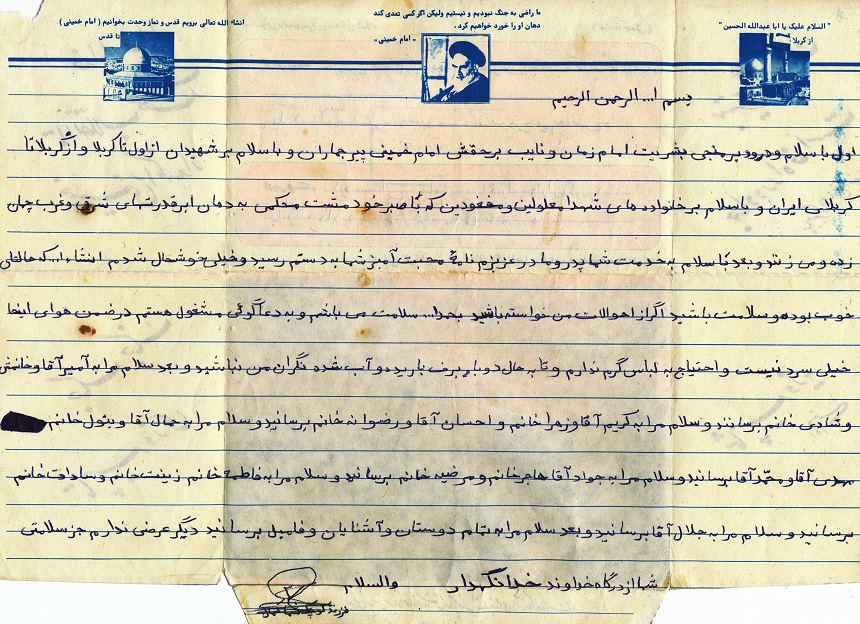 " السلام علیک یا ابا عبدالله الحسین "
از کربلا
ما راضی به جنگ نبودیم و نیستیم ولیکن اگر کسی تعدی کند
دهان او را خورد خواهیم کرد .
« امام خمینی »
انشاء الله تعالی برویم قدس و نماز وحدت بخوانیم ( امام خمینی )
تا قدس
بسم ا... الرحمن الرحیم
اول با سلام و درود بر منجی بشریت امام زمان و نایب برحقش امام خمینی پیر جماران و با سلام بر شهیدان از اول تا کربلا و از کربلا تا
کربلای ایران و با سلام بر خانواده های شهدا معلولین و مفقودین که با صبر خود مشت محکمی به دهان ابرقدرتهای شرق و غرب جهان
زده و می زنند و بعد با سلام به خدمت شما پدر و مادر عزیزم نامهٔ محبت آمیز شما به دستم رسید و خیلی خوشحال شدم انشاء ا... که حالتان
خوب بوده و سلامت باشید اگر از احوالات من خواسته باشید بحمدا... سلامت می باشم و به دعاگوئی مشغول هستم در ضمن هوای اینجا
خیلی سرد نیست و احتیاج به لباس گرم ندارم و تا به حال دوبار برف باریده و آب شده نگران من نباشید و بعد سلام مرا به امیر آقا و خانمش
و شادی خانم برسانند و سلام مرا به کریم آقا و زهرا خانم و احسان آقا و رضوانه خانم برسانید و سلام مرا به جمال آقا و بتول خانم
مهدی آقا و محمّد آقا برسانید و سلام مرا به جواد آقا هاجر خانم و مرضیه خانم برسانید و سلام مرا به فاطمه خانم زینت خانم و سادات خانم
برسانید و سلام مرا به جلال آقا برسانید و بعد سلام مرا به تمام دوستان و آشنایان و فامیل برسانید دیگر عرضی ندارم جز سلامتی
شما از درگاه خداوند خدانگهدار والسلام
فرزند کوچک شما